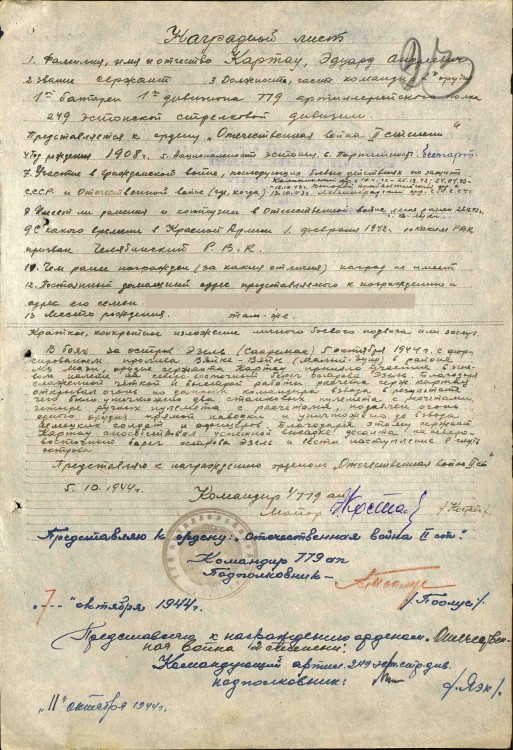 Наградной лист
93
1. Фамилия, имя и отчество Картау, Эдуард Андреевич
2. Звание сержант 3. Должность, часть командир 2го орудия
1ой баттареи 1го дивизиона 779 артиллерийского полка
249 эстонской стрелковой дивизии.
Представляется к ордену "Отечественная война II степени"
4. Год рождения 1908 г. 5. Национальность эстонец 6. Партийность беспарт.
7. Участие в гражданской войне, последующих боевых действиях по защите
СССР и Отечественной войне (где, когда)
8. Имеет ли ранения и контузии в Отечественной войне
9. С какого времени в Красной Армии 1. февраля 1942. Каким РВК
призван Челябинский Р.В.К.
10. Чем ранее награжден (за какия отличия) наград не имеет
12. Постоянный домашний адрес представляемого к награждению и
адрес его семьи.
13 Место рождения. там-же.
Краткое, конкретное изложение личного боевого подвига или заслуг.
В боях за остров Эзель (Сааремаа) 5 октября 1944 г. с фор-
сированием пролива Вяйке-Вяйн в районе
орудие сержанта Картау приняло участие в
налете на северо-восточный берег острова Эзель. Благодаря
слаженной четкой и быстрой работы расчета серж. Картау
открывал огонь по данным командира взвода в результате
чего было уничтожено два станковых пулемета с расчетами,
четыре ручных пулемета с расчетами, подавлен огонь
одного орудия прямой наводки и уничтожено до взвода
немецких солдат и офицеров. Благодаря этому сержант
Картау способствовал успешной высадке десанта на северо-
восточный берег острова Эзель и вести наступление в глубь
острова
Представляю к награждению орденом "Отечественная война II ст"
5. 10. 1944 г. Командир 1/779 ап
Майор
Представляю к ордену: "Отечественная война II ст."
Командир 779 ап
Подполковник-
"7"-- октября 1944 г. /Поолус/.
Представляю к награждению орденом "Отечествен-
ная война 2 степени".
Командующий артил. 249 эст. стр. див.
подполковник: /Яэк/.
"11" октября 1944 г.